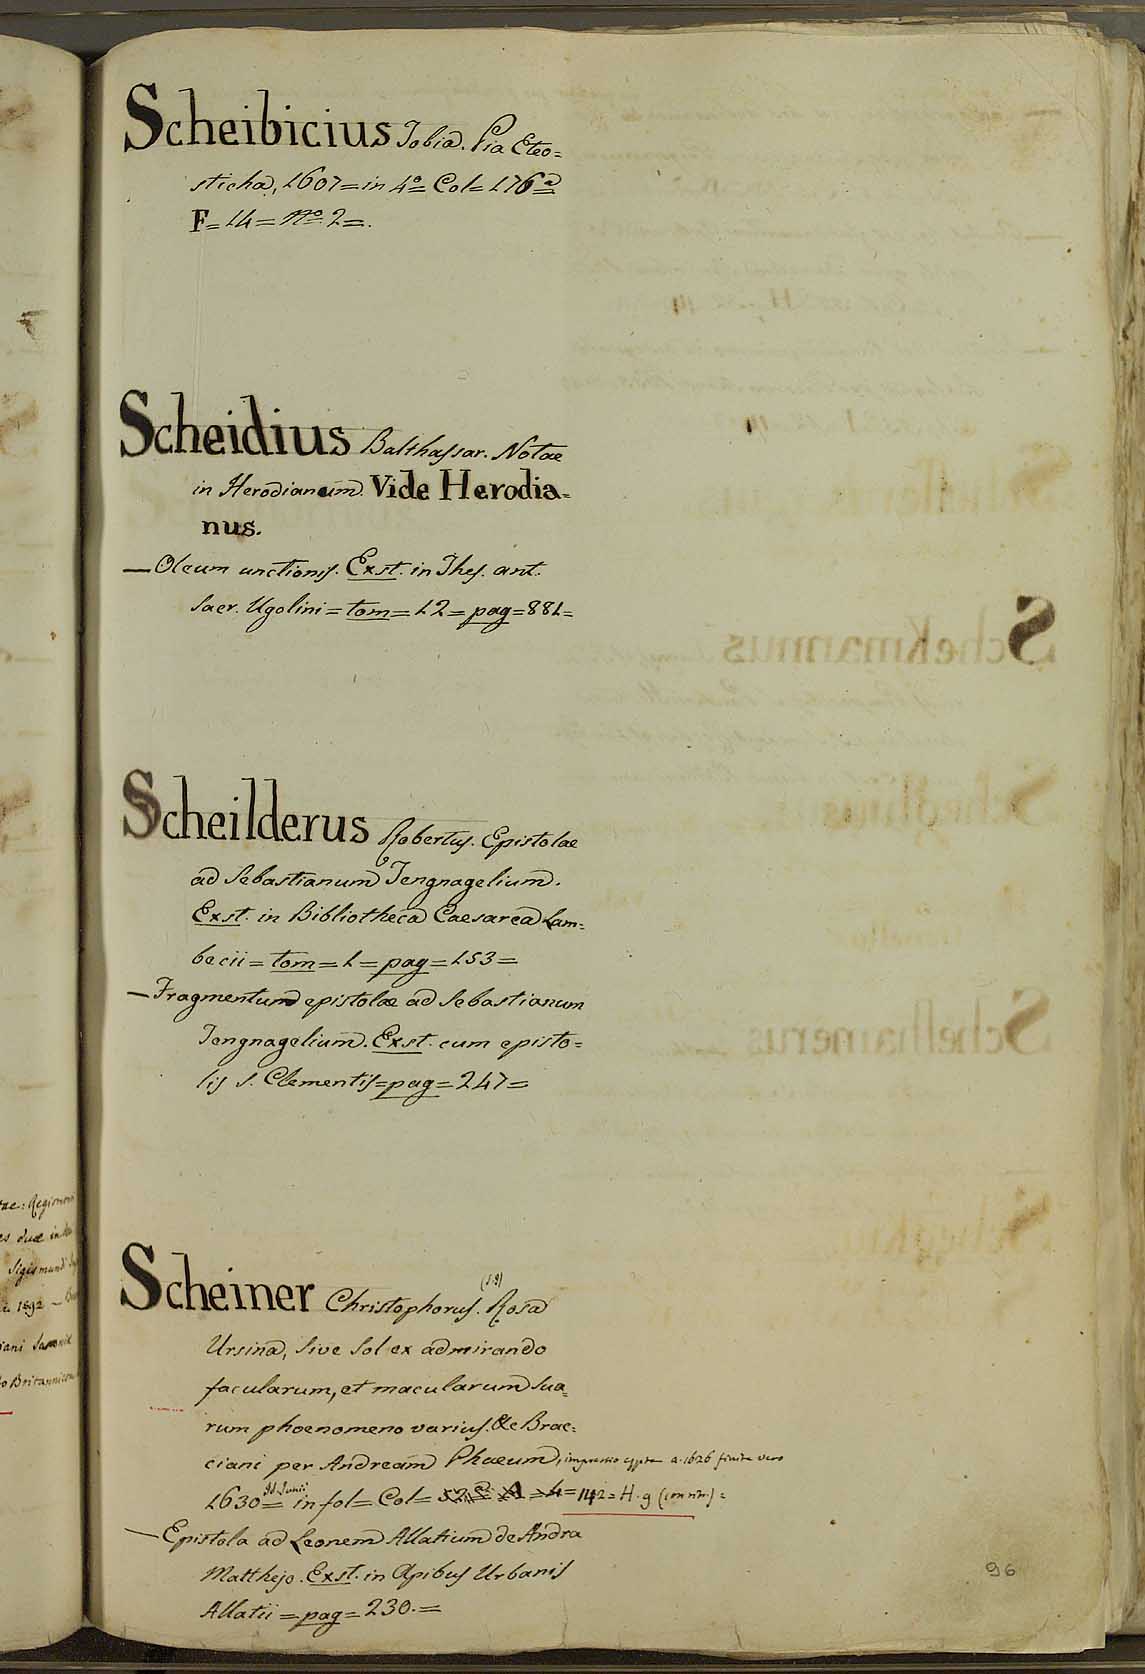 Scheibicius Tobia. Pia Eteo=
sticha, 1607= in 4º Col= 176ª
F= 14= Nº 2=.
Scheidius Balthassar. Notae
in Herodianum. Vide Herodia=
nus.
— Oleum unctionis. Exst. in Thes. ant.
sacr. Ugolini= tom= 12= pag= 881=
Scheilderus Robertus. Epistolae
ad Sebastianum Tengnagelium.
Exst. in Bibliotheca Caesarea Lam=
becii= tom= 1= pag= 153=
— Fragmentum epistolae ad Sebastianum
Tengnagelium. Exst. cum episto=
lis S. Clementis= pag= 247=
Scheiner Christophorus. Rosa
Ursina, sive Sol ex admirando
facularum, et macularum sua=
rum phoenomeno varius. &c Brac=
ciani per Andream Phaeum, impressio a. 1626 finita vero
1630= Id. Junii in fol= Col= 142= H. g
— Epistola ad Leonem Allatium de Andra
Matthejo. Exst. in Apibus Urbanis
Allatii= pag= 230.=
96